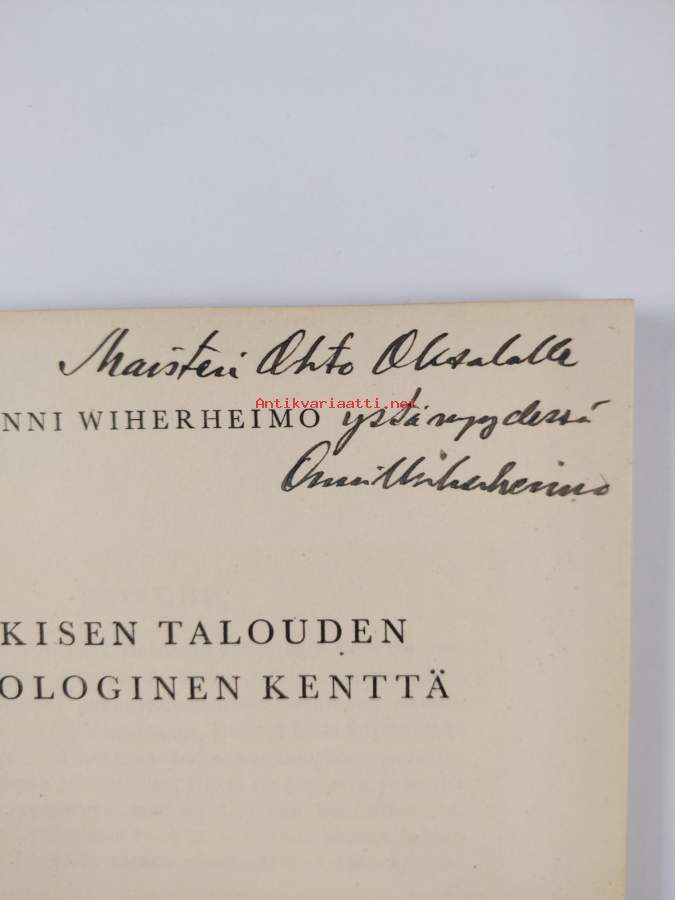 Maisteri Ohto Oksalalle
Antikvariaatti.net
NNI WIHERHEIMO ystävyydessä
Onni Wiherheimo
KISEN TALOUDEN
OLOGINEN KENTTÄ